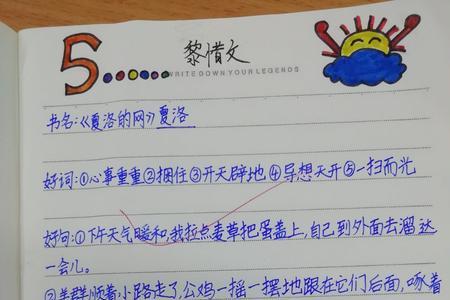 5......
黎惜文
WRITE DOWN YOUR LEGENDS
书名:《夏洛的网》夏洛
好词:①心事重重②捆住③开天辟地④异想天开⑤一扫而光
好句:①下午天气暖和,我拉点麦草把蛋盖上,自己到外面去溜达
一会儿。
②羊群顺着小路走了,公鸡一摇一摆地跟在它们后面,啄着